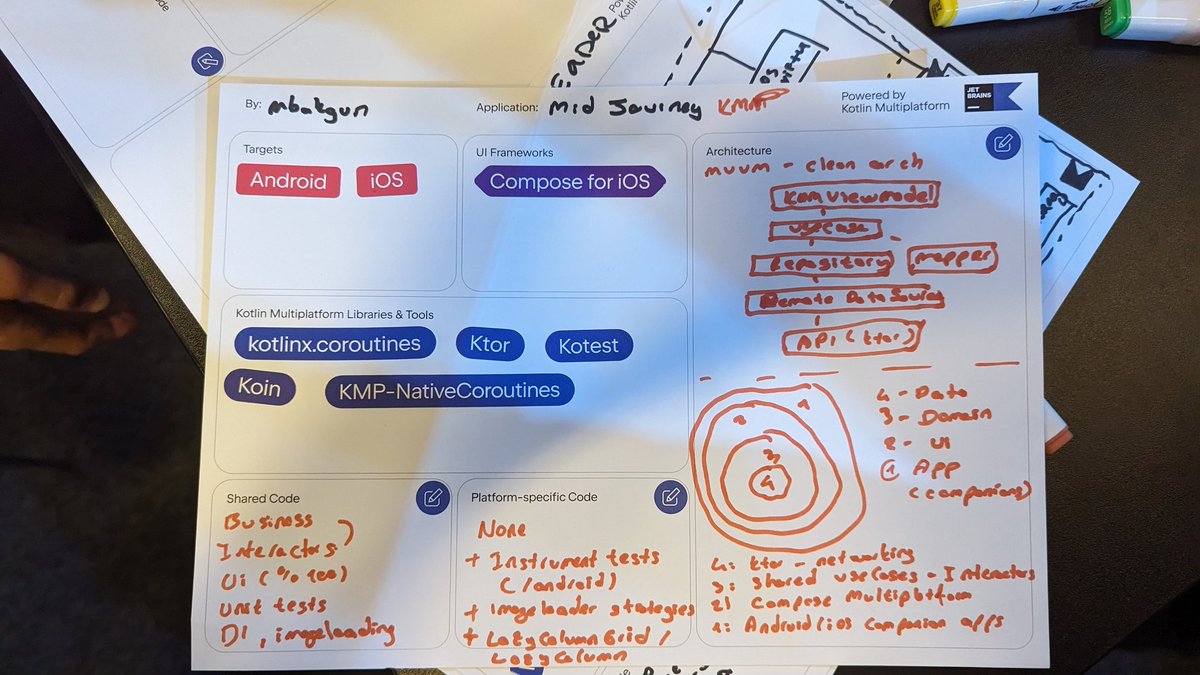 By: mbakgun
Application: Mid Journey KMP
Powered by
Kotlin Multiplatform
JET
BRAINS
Targets
Android
iOS
UI Frameworks
Compose for iOS
Kotlin Multiplatform Libraries & Tools
kotlinx.coroutines
Ktor
Kotest
Koin
KMP-NativeCoroutines
Architecture
MVVM - clean arch
KMMViewModel
UseCase
Repository
mapper
Remote Data Source
API (ktor)
4 - Data
3 - Domain
2 - UI
1 App
(companions)
1
2
3
4
4: ktor - networking
3: Shared useCases - Interactors
2: Compose multiplatform
1: Android/ios Companion apps
Shared Code
Business
Interactors
Ui (%100)
unit tests
DI, imageloading
Platform-specific Code
None
+ Instrument tests
(/android)
+ imageloader strategies
+ LazyColumnGrid /
LazyColumn